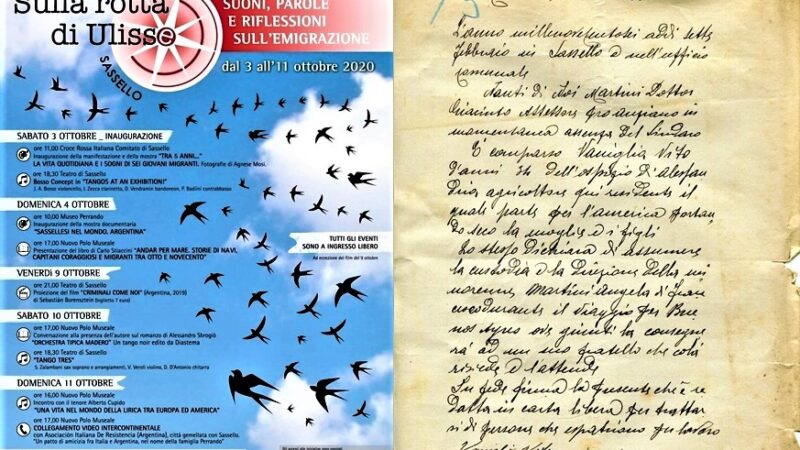 Sulla rotta
di Ulisse
SASSELLO
SUONI, PAROLE
E RIFLESSIONI
SULL'EMIGRAZIONE
dal 3 all'11 ottobre 2020
SABATO 3 OTTOBRE _ INAUGURAZIONE
ore 11,00 Croce Rossa Italiana Comitato di Sassello
Inaugurazione della manifestazione e della mostra "TRA 5 ANNI..."
LA VITA QUOTIDIANA E I SOGNI DI SEI GIOVANI MIGRANTI. Fotografie di Agnese Mosi.
ore 18,30 Teatro di Sassello
Bosso Concept in "TANGOS AT AN EXHIBITION!"
J. A. Bosso violoncello, I. Zecca clarinetto, D. Vendramin bandoneon, F. Badini contrabbasso
DOMENICA 4 OTTOBRE
ore 10,00 Museo Perrando
Inaugurazione della mostra documentaria
"SASSELLESI NEL MONDO. ARGENTINA"
ore 17,00 Nuovo Polo Museale
Presentazione del libro di Carlo Stiaccini "ANDAR PER MARE. STORIE DI NAVI,
CAPITANI CORAGGIOSI E MIGRANTI TRA OTTO E NOVECENTO"
TUTTI GLI EVENTI
SONO A INGRESSO LIBERO
Ad eccezione del film del 9 ottobre
VENERDÌ 9 OTTOBRE
ore 21,00 Teatro di Sassello
Proiezione del film "CRIMINALI COME NOI" (Argentina, 2019)
di Sebastián Borensztein (biglietto 7 euro)
SABATO 10 OTTOBRE
ore 17,00 Nuovo Polo Museale
Conversazione alla presenza dell'autore sul romanzo di Alessandro Sbrogiò
"ORCHESTRA TIPICA MADERO" Un tango noir edito da Diastema
ore 18,30 Teatro di Sassello
"TANGO TRES"
S. Zalambani sax soprano e arrangiamenti, V. Verzli violino, D. D'Antonio chitarra
DOMENICA 11 OTTOBRE
ore 16,00 Nuovo Polo Museale
Incontro con il tenore Alberto Cupido
"UNA VITA NEL MONDO DELLA LIRICA TRA EUROPA ED AMERICA"
ore 17,00 Nuovo Polo Museale
COLLEGAMENTO VIDEO INTERCONTINENTALE
con Asociación Italiana De Resistencia (Argentina), città gemellata con Sassello.
"Un patto di amicizia fra Italia e Argentina, nel nome della famiglia Perrando"
L'anno millenovecentosei addì sette
febbraio in Sassello e nell'ufficio
comunale
Nanti di Noi Martini Dottor
Giacinto Assessore pro anziano in
momentanea assenza del Sindaco
È comparso Vaniglia Vito
d'anni 34 dell'Ospizio d'Alessan
dria agricoltore qui residente il
quale parte per l'america portan
do seco la moglie e i figli
Lo stesso dichiara di assumere
la custodia e la direzione della mi
norenne Martini Angela di Fran
cesco durante il viaggio per Bue
nos Ayres ove giunti la consegne
rà ad un suo fratello che colà
risiede e l'attende
In fede firma la presente che è re
datta in carta libera per trattar
si di persone che espatriano per lavoro
Vaniglia Vito